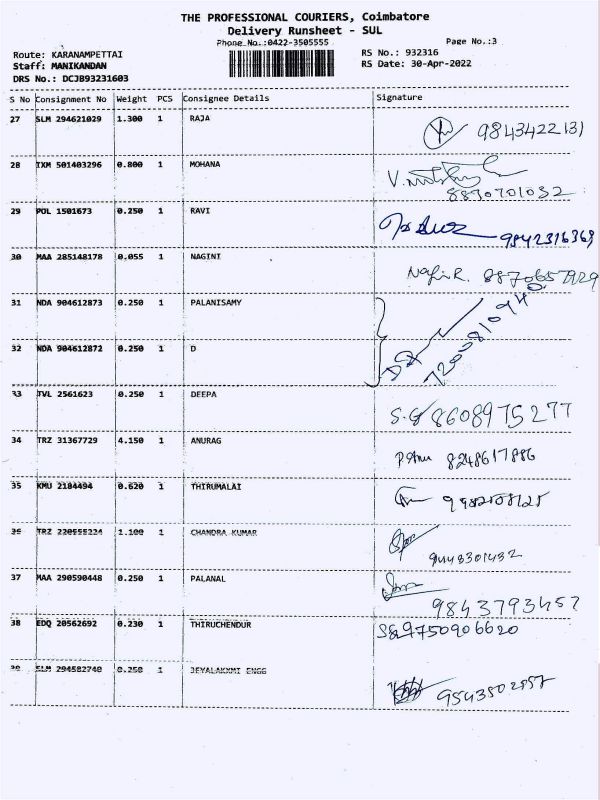 THE PROFESSIONAL COURIERS, Coimbatore
Delivery Runsheet - SUL
Phone No.:0422-3505555 Page No.:3
Route: KARANAMPETTAI RS No.: 932316
Staff: MANIKANDAN RS Date: 30-Apr-2022
DRS No.: DCJB93231603
S No Consignment No Weight PCS Consignee Details Signature
27 SLM 294621029 1.300 1 RAJA 9843422131
28 TXM 501403296 0.800 1 MOHANA
8870701032
29 POL 1501673 0.250 1 RAVI
9842316369
30 MAA 285148178 0.055 1 NAGINI
8870657929
31 NDA 904612873 0.250 1 PALANISAMY
7200810940
32 NDA 904612872 0.250 1 D
33 TVL 2561623 0.250 1 DEEPA
8608975277
34 TRZ 31367729 4.150 1 ANURAG
8248617886
35 KMU 2184494 0.620 1 THIRUMALAI
36 TRZ 1.100 1 CHANDRA KUMAR
9443301432
37 MAA 290590448 0.250 1 PALANAL
9843793457
38 EDQ 20562692 0.230 1 THIRUCHENDUR 9750906620
39 SLM 294582740 0.250 1 JEYALAKXMI ENGG